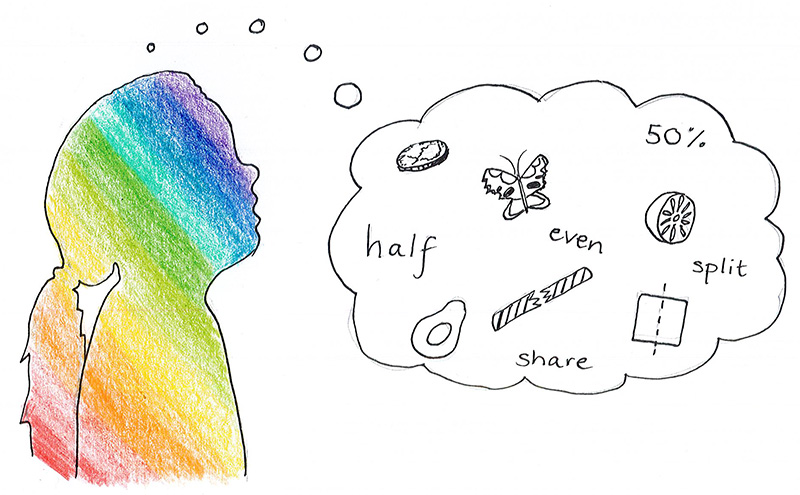 50%
half
even
split
share